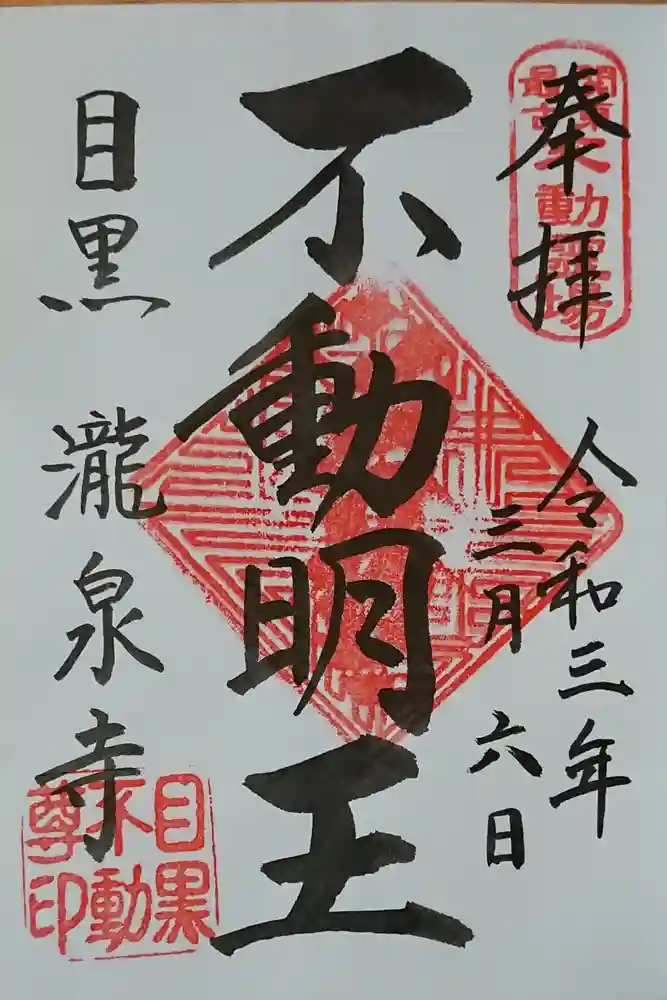 奉拝
関東最古不動霊場
令和三年
三月六日
不動明王
目黒瀧泉寺
目黒不動尊印